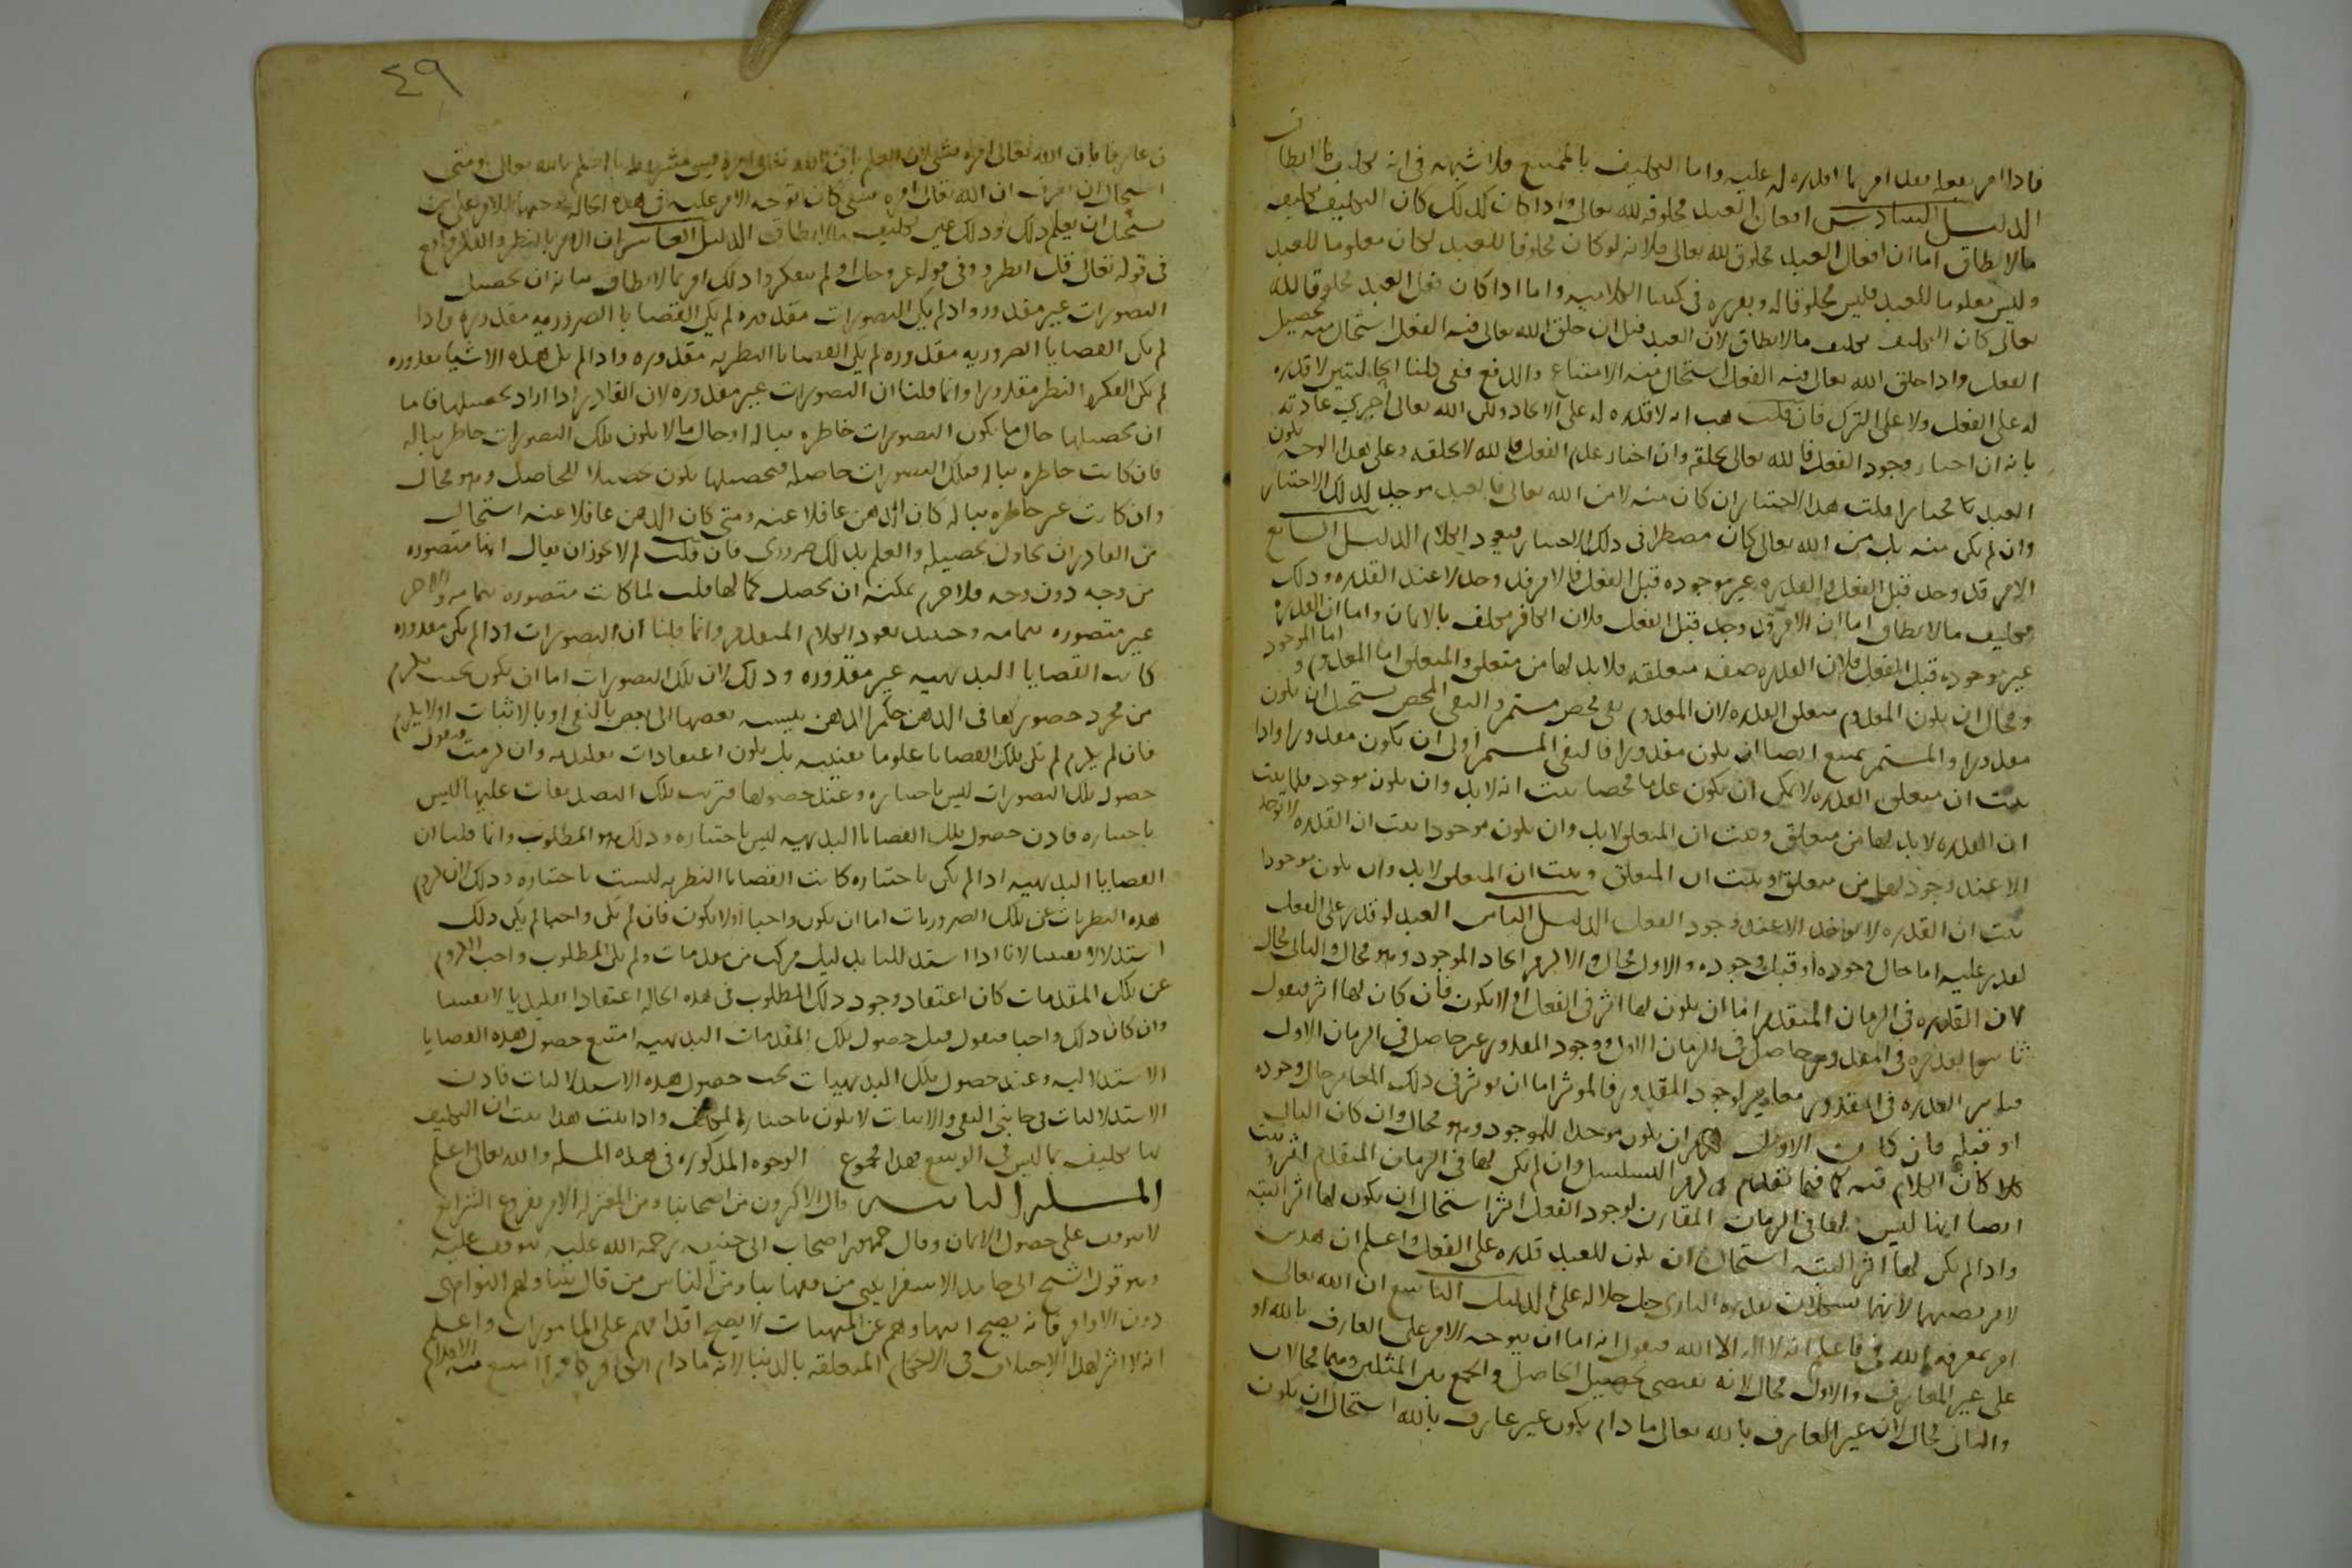 فاذا امر بفعله فقد امر بما اقدره له عليه واما التكليف بالممتنع فلا شبهة فى انه تكليف ما لا يطاق
الدليل السادس افعال العبد مخلوقة لله تعالى واذا كان كذلك كان التكليف تكليف
ما لا يطاق اما ان افعال العبد مخلوق لله تعالى فلانه لو كان مخلوقا للعبد لكان معلوما للعبد
وليس معلوما للعبد فليس مخلوقا له وتقريره فى كتبنا الكلاميه واما اذا كان فعل العبد مخلوقا لله
تعالى كان التكليف تكليف ما لا يطاق لان العبد قبل ان خلق الله تعالى فيه الفعل استحال منه تحصيل
الفعل واذا خلق الله تعالى فيه الفعل استحال منه الامتناع والدفع ففى كلتا الحالتين لا قدره
له على الفعل ولا على الترك فان قلت هب انه لا قدره له على الايجاد ولكن الله تعالى اجرى عادته
بانه ان اختار وجود الفعل فالله تعالى يخلقه وان اختار عدم الفعل فالله لا يخلقه وعلى هذا الوجه يكون
العبد مختارا قلت هذا الاختيار ان كان منه لا من الله تعالى فالعبد موجد لذلك الاختيار
وان لم يكن منه بل من الله تعالى كان مضطرا فى ذلك الاختيار فيعود الكلام الدليل السابع
الامر قد وجد قبل الفعل والقدره غير موجوده قبل الفعل فالامر قد وجد لا عند القدره وذلك
تكليف ما لا يطاق اما ان الامر قد وجد قبل الفعل فلان الكافر مكلف بالايمان واما ان القدره
غير موجوده قبل الفعل فلان القدره صفه متعلقه فلا بد لها من متعلق والمتعلق اما المعدوم واما الموجود
ومحال ان يكون المعدوم متعلق القدره لان المعدوم نفى محض مستمر والنفى المحض يستحيل ان يكون
مقدورا والمستمر يمتنع ايضا ان يكون مقدورا فالنفى المستمر اولى ان لا يكون مقدورا واذا
ثبت ان متعلق القدره لا يمكن ان يكون عدما محضا ثبت انه لا بد وان يكون موجود فلما ثبت
ان القدره لا بد لها من متعلق وثبت ان المتعلق لا بد وان يكون موجودا ثبت ان القدره لا توجد
الا عند وجود لها من متعلق وثبت ان المتعلق وثبت ان المتعلق لا بد وان يكون موجودا
ثبت ان القدره لا توجد الا عند وجود الفعل الدليل الثامن العبد لو قدر على الفعل
لقدر عليه اما حال وجوده او قبل وجوده والاول محال والا لزم ايجاد الموجود وهو محال والثانى محال
لان القدره فى الزمان المتقدم اما ان يكون لها اثر فى الفعل او لا يكون فان كان لها اثر فنقول
تاثير القدره فى المقدور حاصل فى الزمان الاول ووجود المقدور غير حاصل فى الزمان الاول
فتاثير القدره فى المقدور مغاير لوجود المقدور فالموثر اما ان يوثر فى ذلك المغاير حال وجوده
او قبله فان كان الاول لزم ان يكون موجدا للموجود وهو محال وان كان الثانى
كان الكلام فيه كما فيما تقدم ولزم التسلسل وان لم يكن لها فى الزمان المتقدم اثر وثبت
ايضا انها ليس لها فى الزمان المقارن لوجود الفعل اثر استحال ان يكون لها اثر البته
واذا لم يكن لها اثر البته استحال ان يكون للعبد قدره على الفعل واعلم ان هذين
لا نرتضيهما لانهما يشكلان بقدره البارى جل جلاله على الدليل التاسع ان الله تعالى
امر بمعرفة الله فى فاعلم انه لا اله الا الله فنقول انه اما ان يتوجه الامر على العارف بالله او
على غير العارف والاول محال لانه يقتضى تحصيل الحاصل والجمع بين المثلين وهما محالان
والثانى محال لان غير العارف بالله تعالى ما دام يكون غير عارف بالله استحال ان يكون
٤٩
عارفا بان الله تعالى امره بشى لان العلم بان الله تعالى امره بشى مشروط بالعلم بالله تعالى ومتى
استحال ان يعرف ان الله تعالى امره بشى كان توجه الامر عليه فى هذه الحاله توجيها للامر على من
يستحيل ان يعلم ذلك وذلك عين تكليف ما لا يطاق الدليل العاشر ان الامر بالنظر والفكر واقع
فى قوله تعالى قل انظروا وفى قوله عز وجل او لم يتفكروا وذلك امر بما لا يطاق بيانه ان تحصيل
التصورات غير مقدور واذا لم يكن التصورات مقدوره لم يكن القضايا الضروريه مقدوره واذا
لم يكن القضايا الضروريه مقدوره لم يكن القضايا النظريه مقدوره واذا لم يكن هذه الاشيا مقدوره
لم يكن الفكر والنظر مقدورا وانما قلنا ان التصورات غير مقدوره لان القادر اذا اراد تحصيلها فاما
ان يحصلها حال ما يكون التصورات خاطره بباله او حال ما لا يكون تلك التصورات خاطره بباله
فان كانت خاطره بباله فتلك التصورات حاصله فتحصيلها يكون تحصيلا للحاصل وهو محال
وان كانت غير خاطره بباله كان الذهن غافلا عنه ومتى كان الذهن غافلا عنه استحال
من القادر ان يحاول تحصيله والعلم بذلك ضرورى فان قلت لم لا يجوز ان يقال انها متصوره
من وجه دون وجه فلا جرم يمكنه ان يحصل كمالها قلت لما كانت متصوره بتمامه والاخر
غير متصوره بتمامه وحينئذ يعود الكلام المتقدم وانما قلنا ان التصورات اذا لم يكن مقدوره
كانت القضايا البديهيه غير مقدوره وذلك لان تلك التصورات اما ان يكون بحيث يلزم
من مجرد حضورها فى الذهن حكم الذهن بنسبه بعضها الى بعض بالنفى او بالاثبات او لا يلزم
فان لم يلزم لم تكن تلك القضايا علوما يقينيه بل يكون اعتقادات تقليديه وان لزمت فنقول
حصول تلك التصورات ليس باختياره وعند حصولها فترتب تلك التصديقات عليها ليس
باختياره فاذن حصول تلك القضايا البديهيه ليس باختياره وذلك هو المطلوب وانما قلنا ان
القضايا البديهيه اذا لم يكن باختياره كانت القضايا النظريه ليست باختياره وذلك لان لزوم
هذه النظريات عن تلك الضروريات اما ان يكون واجبا او لا يكون فان لم يكن واجبا لم يكن ذلك
استدلالا يقينيا لانا اذا استدللنا بدليل مركب من مقدمات ولم يكن المطلوب واجب اللزوم
عن تلك المقدمات كان اعتقاد وجود ذلك المطلوب فى هذه الحاله اعتقادا تقليديا لا يقينيا
وان كان ذلك واجبا فنقول قبل حصول تلك المقدمات البديهيه امتنع حصول هذه القضايا
الاستدلاليه وعند حصول تلك البديهيات يجب حصول هذه الاستدلاليات فاذن
الاستدلاليات فى جانبى النفى والاثبات لا يكون باختيار المكلف واذا ثبت هذا ثبت ان التكليف
بها تكليف بما ليس فى الوسع فهذا مجموع الوجوه المذكوره فى هذه المسله والله تعالى اعلم
المسله الثانيه قال الاكثرون من اصحابنا ومن المعتزله الامر بفروع الشرائع
لا يتوقف على حصول الايمان وقال جمهور اصحاب ابى حنيفه رحمة الله عليه يتوقف عليه
وهو قول الشيخ ابى حامد الاسفراينى من فقهائنا ومن الناس من قال يتناولهم النواهى
دون الاوامر فانه يصح انتهاوهم عن المنهيات لا يصح اقدامهم على المامورات واعلم
انه لا اثر لهذا الاختلاف فى الاحكام المتعلقه بالدنيا لانه ما دام الكافر كافرا امتنع منه الاقدام